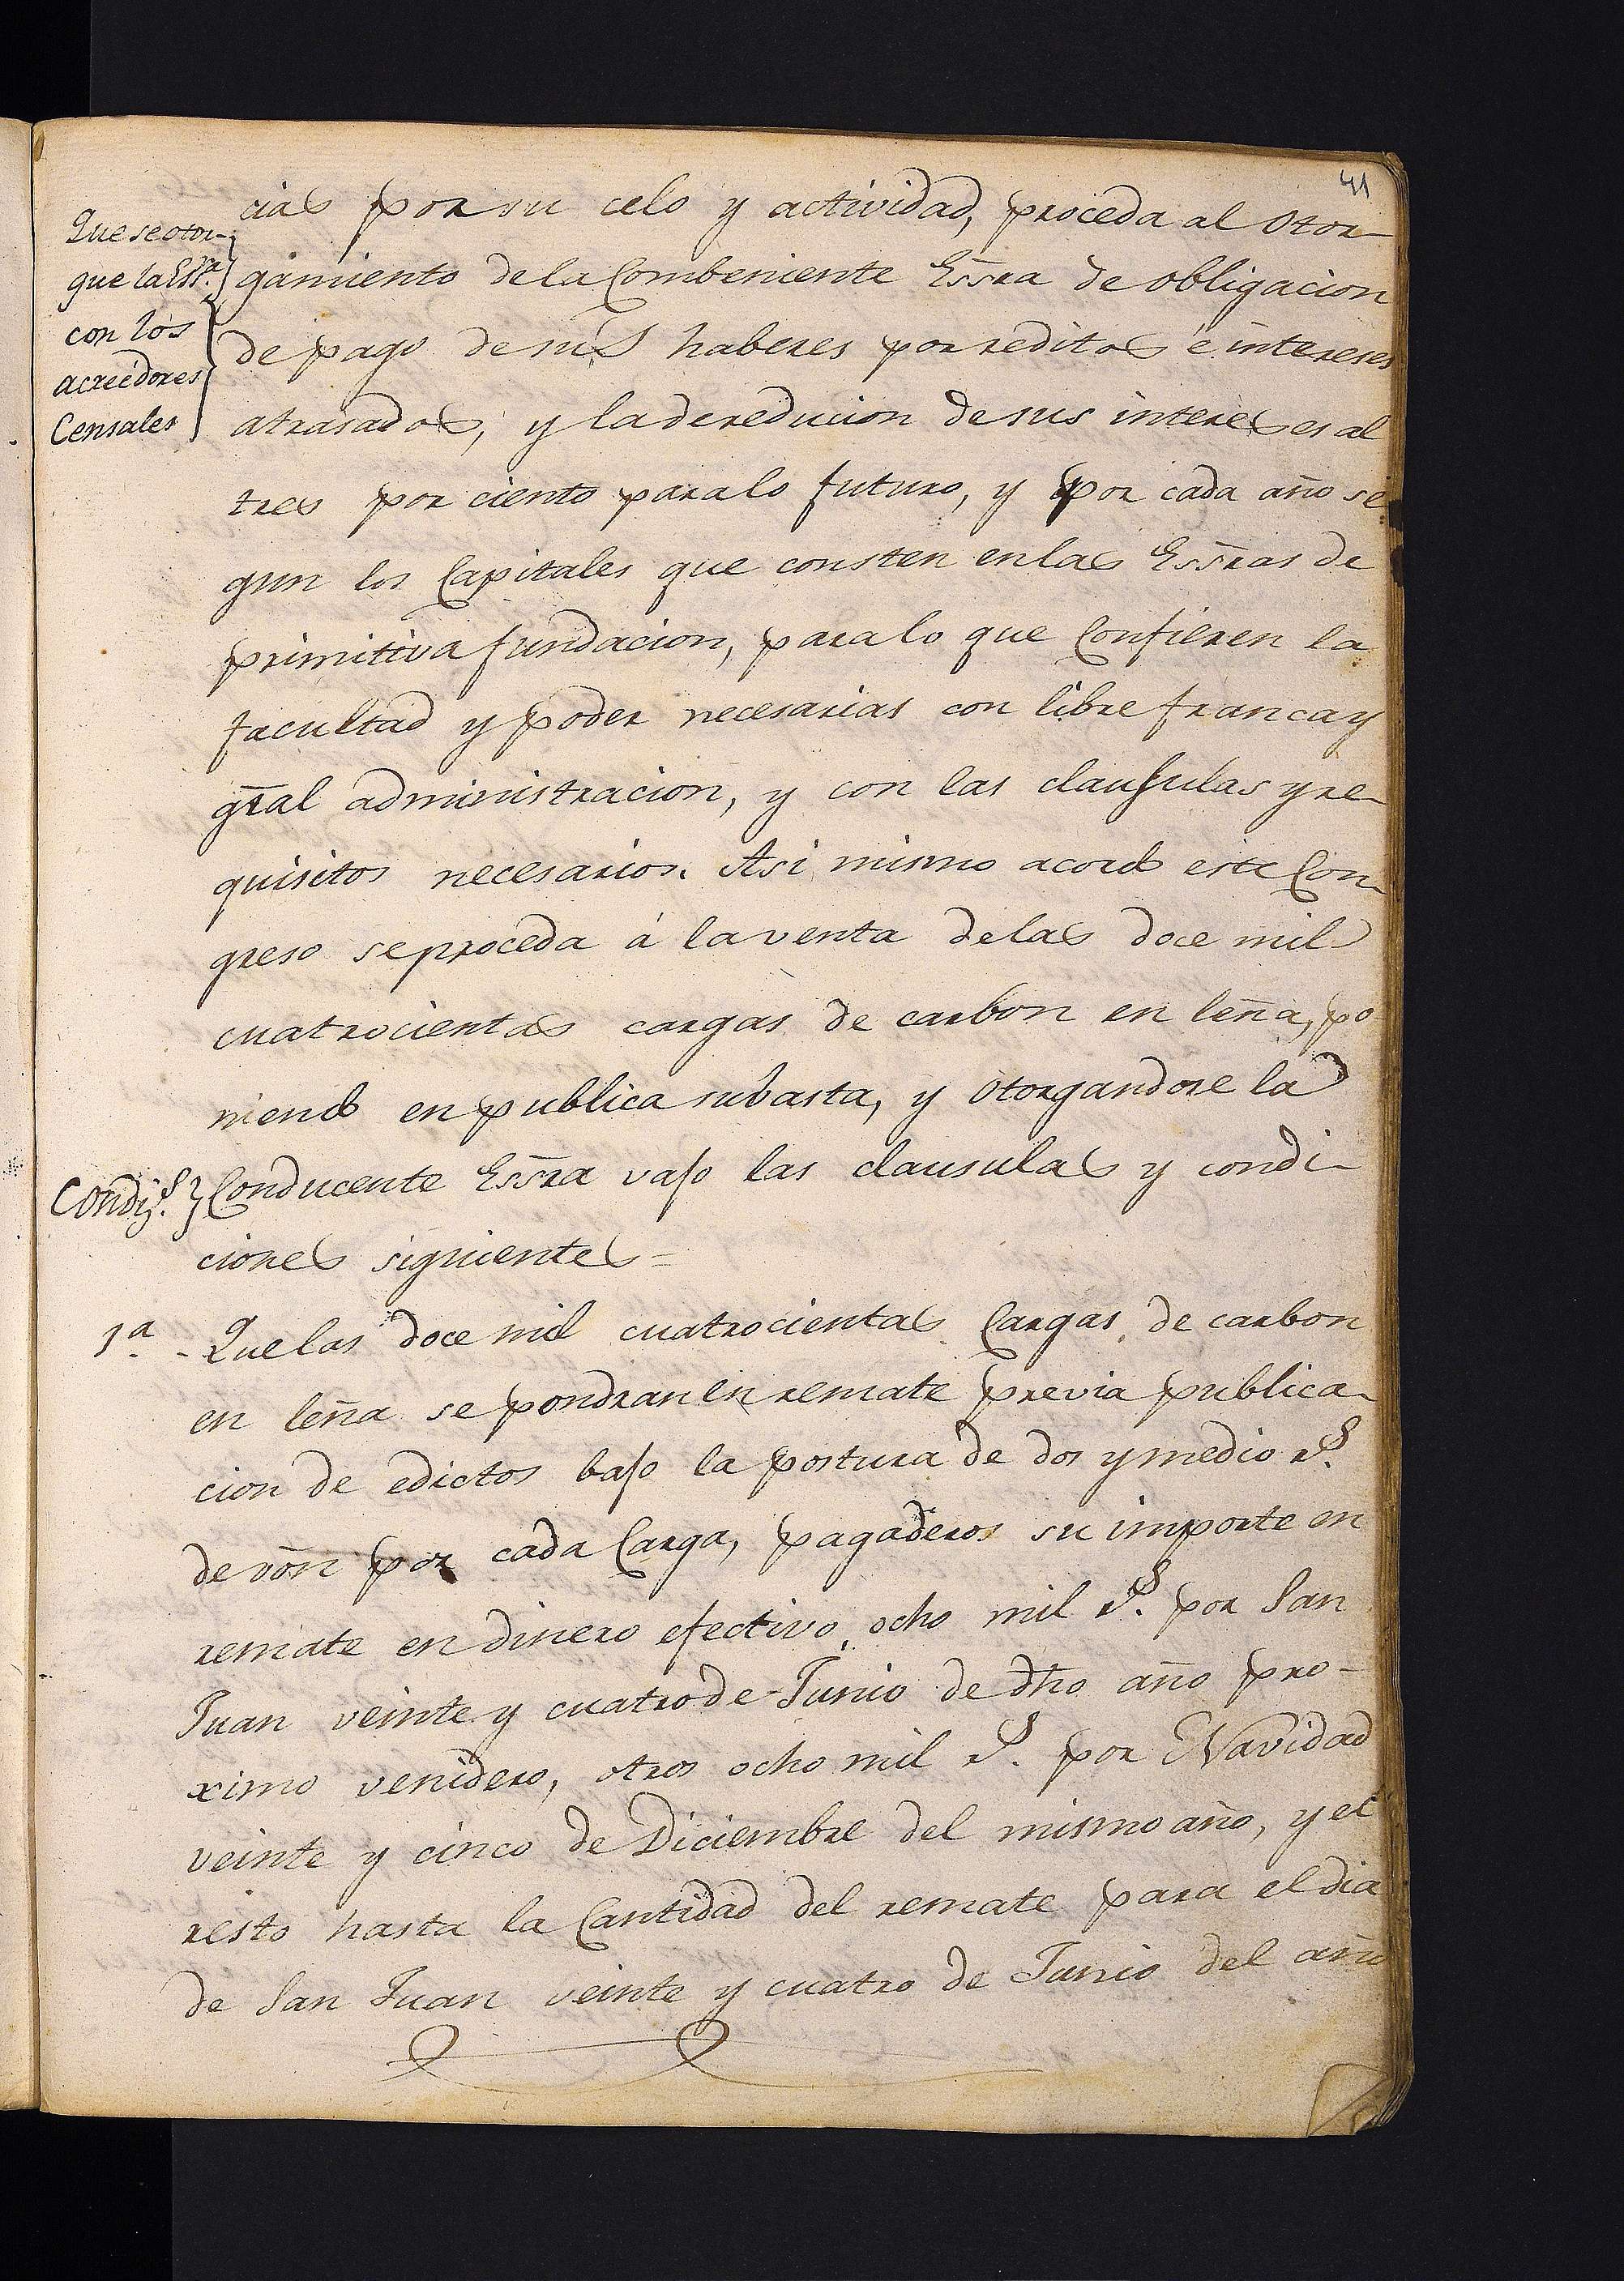 41
cias por su celo y actividad, proceda al Otor-
Que se otor-
gue la Essª.
con los
acreedores
Censales
gamiento de la Combeniente Essra de obligacion
de pago de sus haberes por reditos é intereses
atrasados, y la de reducion de sus intereses al
tres por ciento para lo futuro, y por cada año se
gun los Capitales que consten en las Essras de
primitiva fundacion, para lo que Confieren la
facultad y poder necesarias con libre franca y
gral administracion, y con las clausulas y re-
quisitos necesarios. Asi mismo acordo este Con-
greso se proceda á la venta de las doce mil
cuatrocientas cargas de carbon en leña, po
niendo en publica subasta, y Otorgandose la
Condiz.s
Conducente Essra vajo las clausulas y condi-
ciones siguientes=
1ª - Que las doce mil cuatrocientas Cargas de carbon
en leña se pondran en remate previa publica-
cion de edictos bajo la postura de dos y medio r.s
de von por cada Carga, pagaderos su importe en
remate en dinero efectivo, ocho mil r.s por San
Juan veinte y cuatro de Junio de dho año pro-
ximo venidero, otros ocho mil r.s por Navidad
veinte y cinco de Diciembre del mismo año, y el
resto hasta la Cantidad del remate para el dia
de San Juan veinte y cuatro de Junio del año